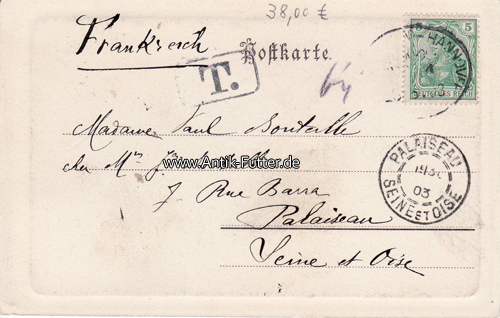 38,00 €
Frankreich
Postkarte.
T.
5
HANNOVER
DEUTSCHES REICH
Madame Paul Bouteille
chez Mr
www.Antik-Futter.de
7 Rue Barra
Palaiseau
Seine et Oise
PALAISEAU
03
SEINE ET OISE